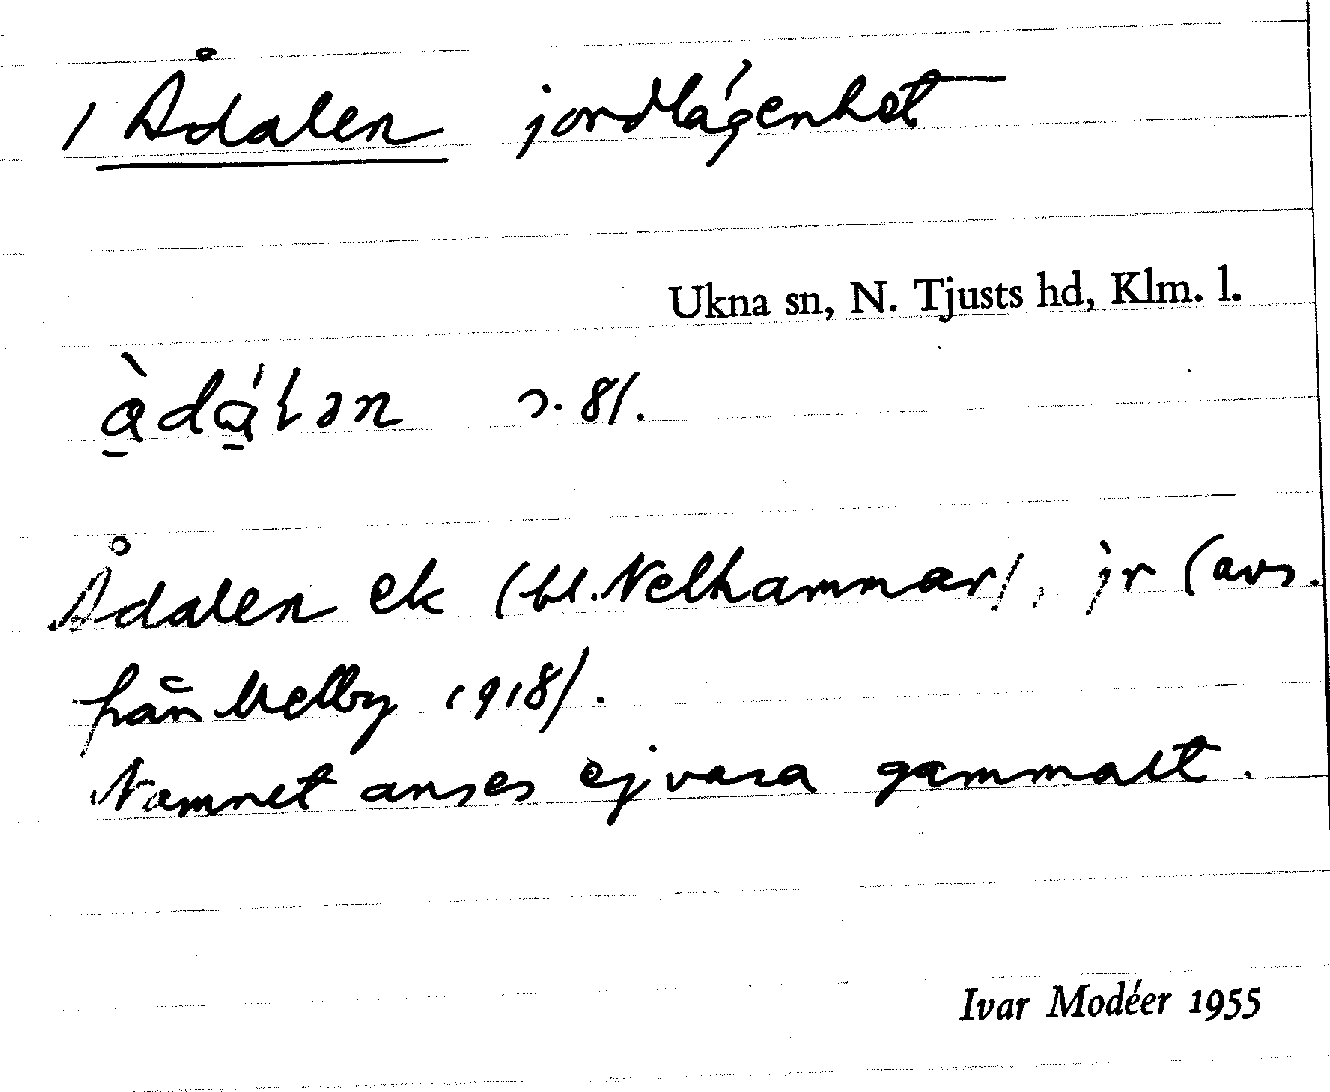 / Ådalen jordlägenhet
Ukna sn, N. Tjusts hd, Klm. l.
à̱dá̱lən ɔ. 8/.
Ådalen ek (bl. Nelhammar/, jr (avs.
från Melby 1918/.
Namnet anses ej vara gammalt.
Ivar Modéer 1955